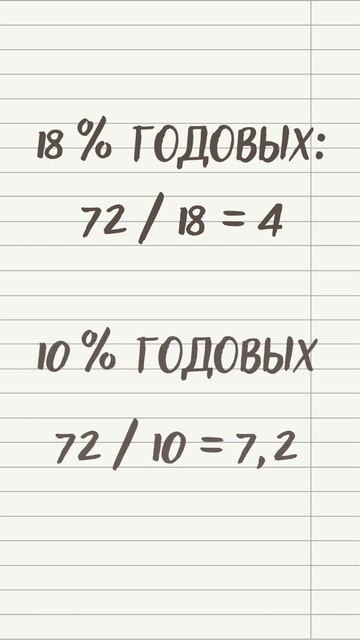 18 % ГОДОВЫХ:
72 / 18 = 4
10 % ГОДОВЫХ
72 / 10 = 7,2